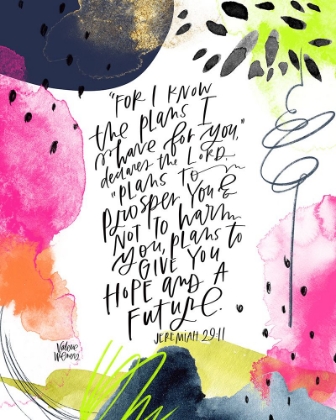 "FOR I KNOW
the plans I
have for you,"
declares the LORD.
"PLANS TO
PROSPER YOU &
NOT TO harm
you, plans to
GIVE YOU
HOPE and A
Future.
JEREMIAH 29:11
Valerie
Wieners